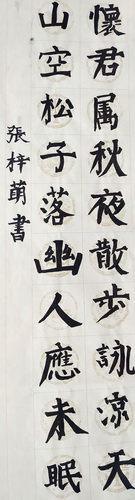 懷君属秋夜散步詠涼天
山空松子落幽人應未眠
張梓萌書